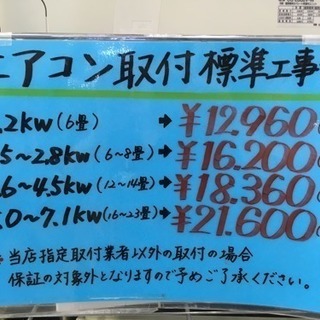 エアコン取付標準工事
.2kw(6畳)→¥12.960
5~2.8kw(6~8畳)→¥16.200
.6~4.5kw(12~14畳)→¥18.360
.0~7.1kw(16~23畳)→¥21.600
※当店指定取付業者以外の取付の場合
保証の対象外となりますので予めご了承ください。